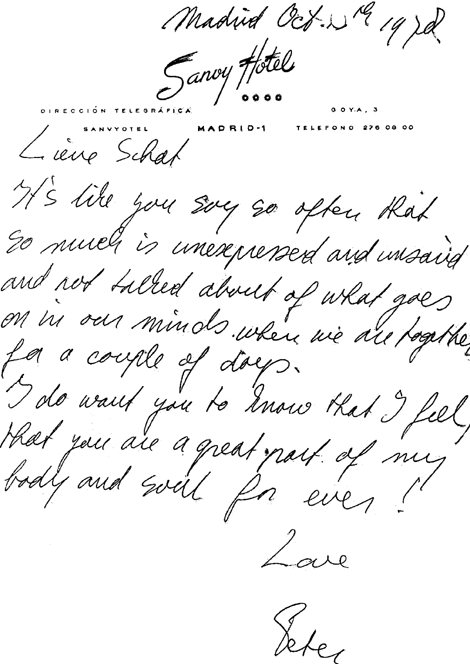 Madrid Oct. 11th 1972.
Sanvy Hotel
DIRECCIÓN TELEGRÁFICA
GOYA, 3
SANVYOTEL
MADRID-1
TELEFONO 276 08 00
Lieve Schat
It's like you say so often that
so much is unexpressed and unsaid
and not talked about of what goes
on in our minds when we are together
for a couple of days.
I do want you to know that I feel,
that you are a great part of my
body and soul for ever!
Love
Peter